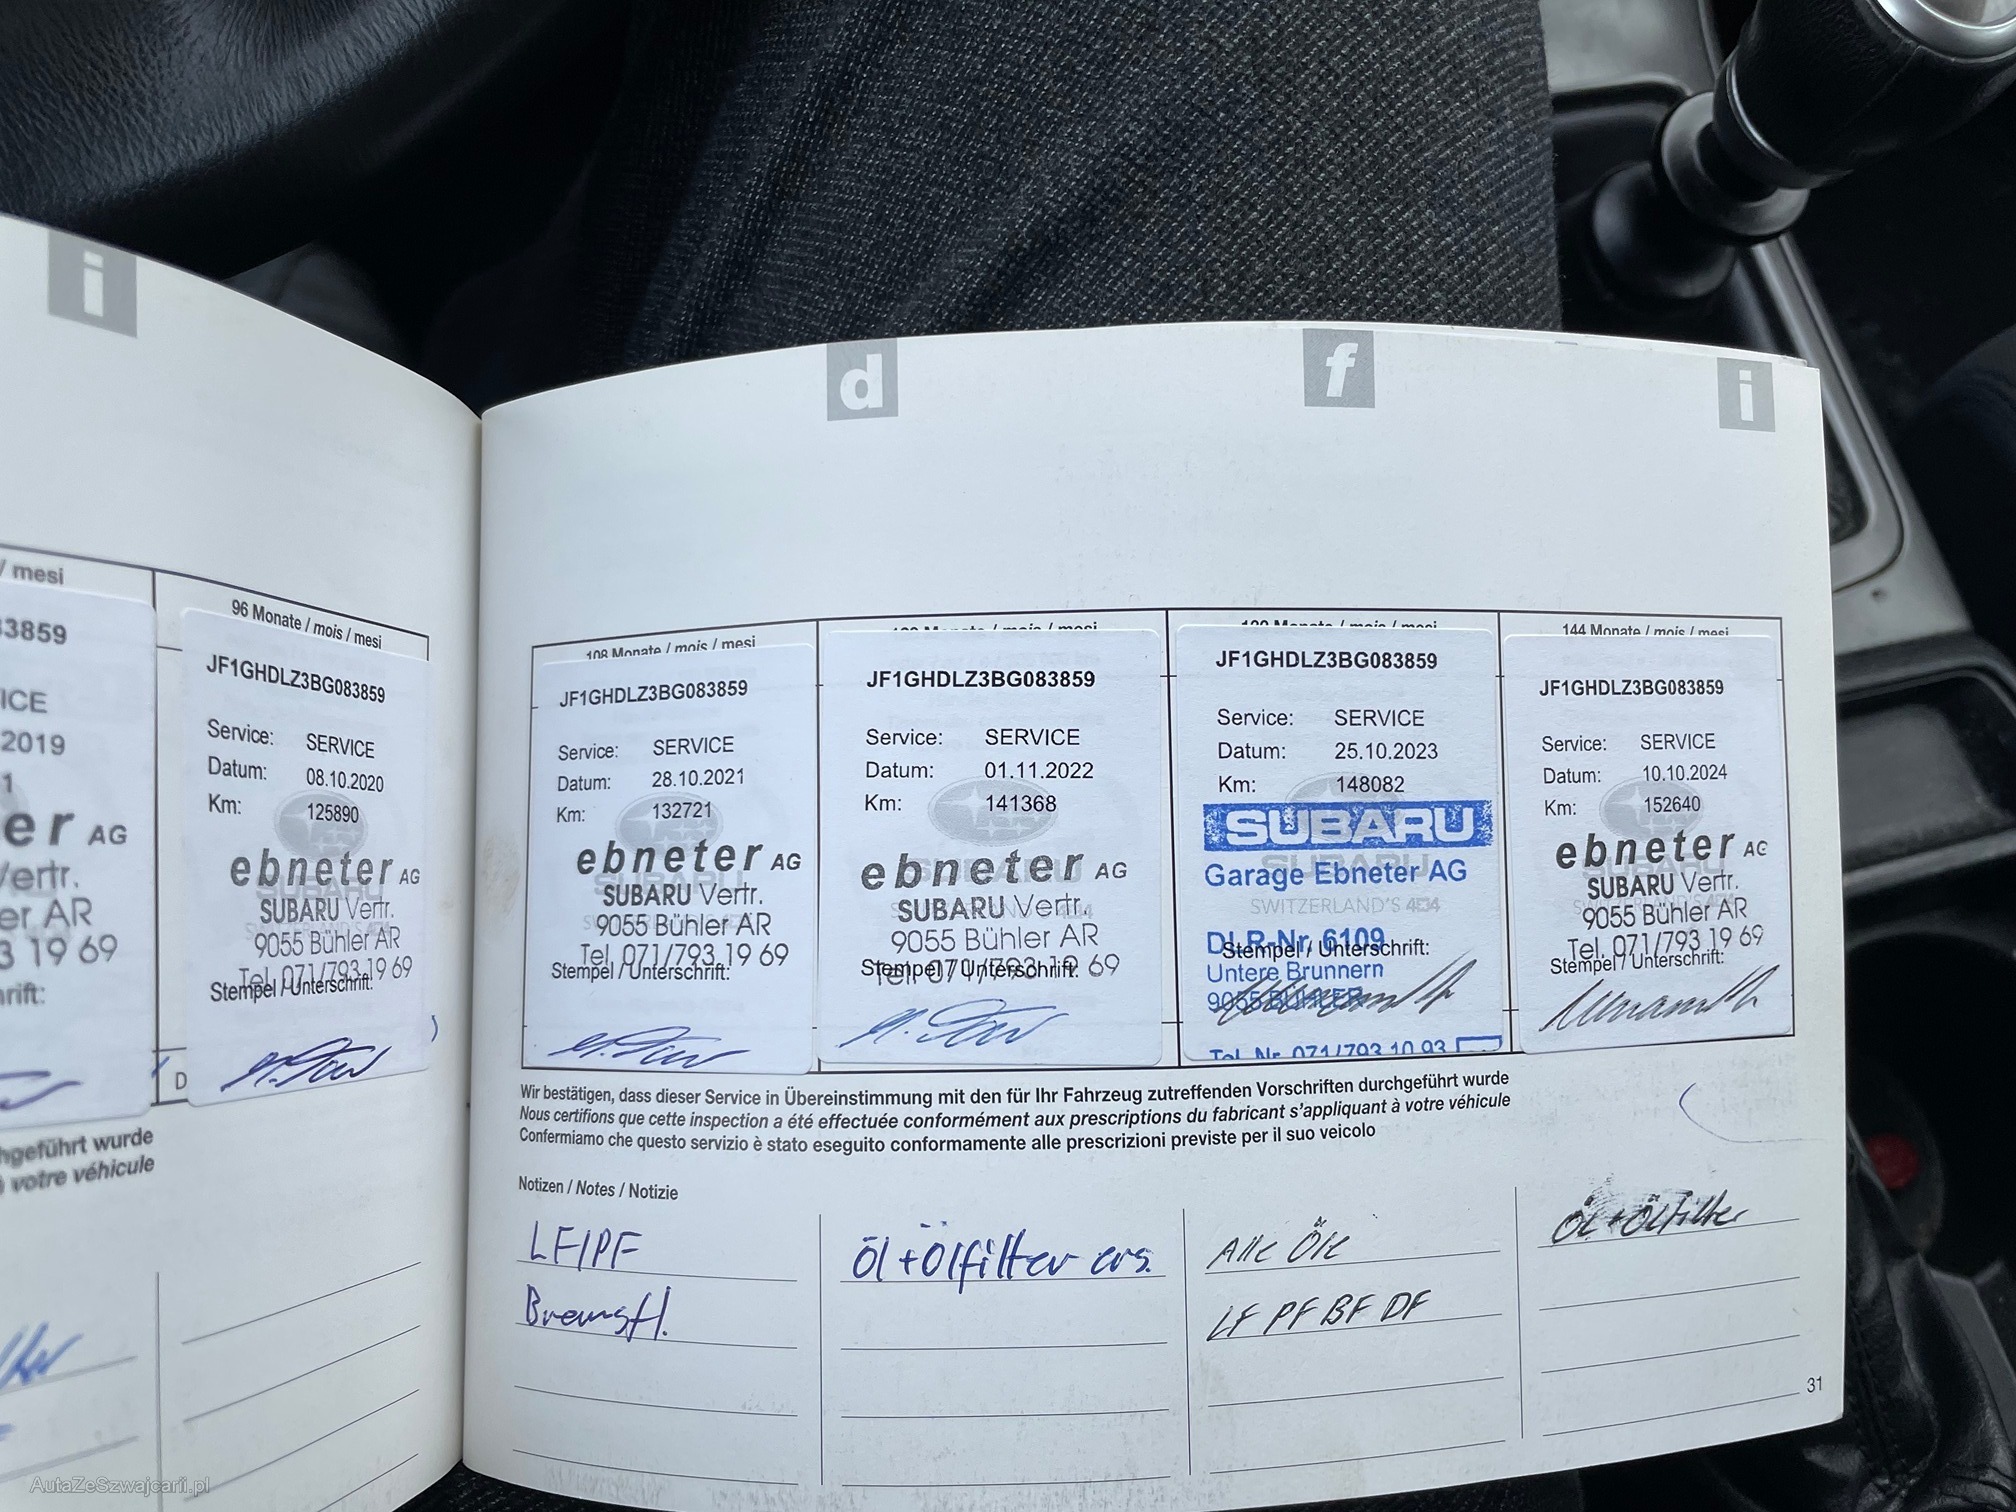 i
/ mesi
3859
ICE
2019
1
er AG
Vertr.
er AR
3 19 69
rift:
hgeführt wurde
à votre véhicule
96 Monate / mois / mesi
JF1GHDLZ3BG083859
Service: SERVICE
Datum: 08.10.2020
Km: 125890
ebneter AG
SUBARU Vertr.
9055 Bühler AR
Tel. 071/793 19 69
Stempel / Unterschrift:
D
d
f
i
108 Monate / mois / mesi
JF1GHDLZ3BG083859
Service: SERVICE
Datum: 28.10.2021
Km: 132721
ebneter AG
SUBARU Vertr.
9055 Bühler AR
Tel. 071/793 19 69
Stempel / Unterschrift:
Monate / mois / mesi
JF1GHDLZ3BG083859
Service: SERVICE
Datum: 01.11.2022
Km: 141368
ebneter AG
SUBARU Vertr.
9055 Bühler AR
Tel. 071/793 19 69
Stempel / Unterschrift:
Monate / mois / mesi
JF1GHDLZ3BG083859
Service: SERVICE
Datum: 25.10.2023
Km: 148082
SUBARU
Garage Ebneter AG
SWITZERLAND'S 4x4
DLR-Nr. 6109
Stempel / Unterschrift:
Untere Brunnern
9055 BÜHLER
Tel. Nr. 071/793 10 93
144 Monate / mois / mesi
JF1GHDLZ3BG083859
Service: SERVICE
Datum: 10.10.2024
Km: 152640
ebneter AG
SUBARU Vertr.
9055 Bühler AR
Tel. 071/793 19 69
Stempel / Unterschrift:
Wir bestätigen, dass dieser Service in Übereinstimmung mit den für Ihr Fahrzeug zutreffenden Vorschriften durchgeführt wurde
Nous certifions que cette inspection a été effectuée conformément aux prescriptions du fabricant s'appliquant à votre véhicule
Confermiamo che questo servizio è stato eseguito conformamente alle prescrizioni previste per il suo veicolo
Notizen / Notes / Notizie
LF/PF
Bremsfl.
Öl + Ölfilter ers.
Alle Öle
LF PF BF DF
Öl + Ölfilter
31
AutaZeSzwajcarii.pl